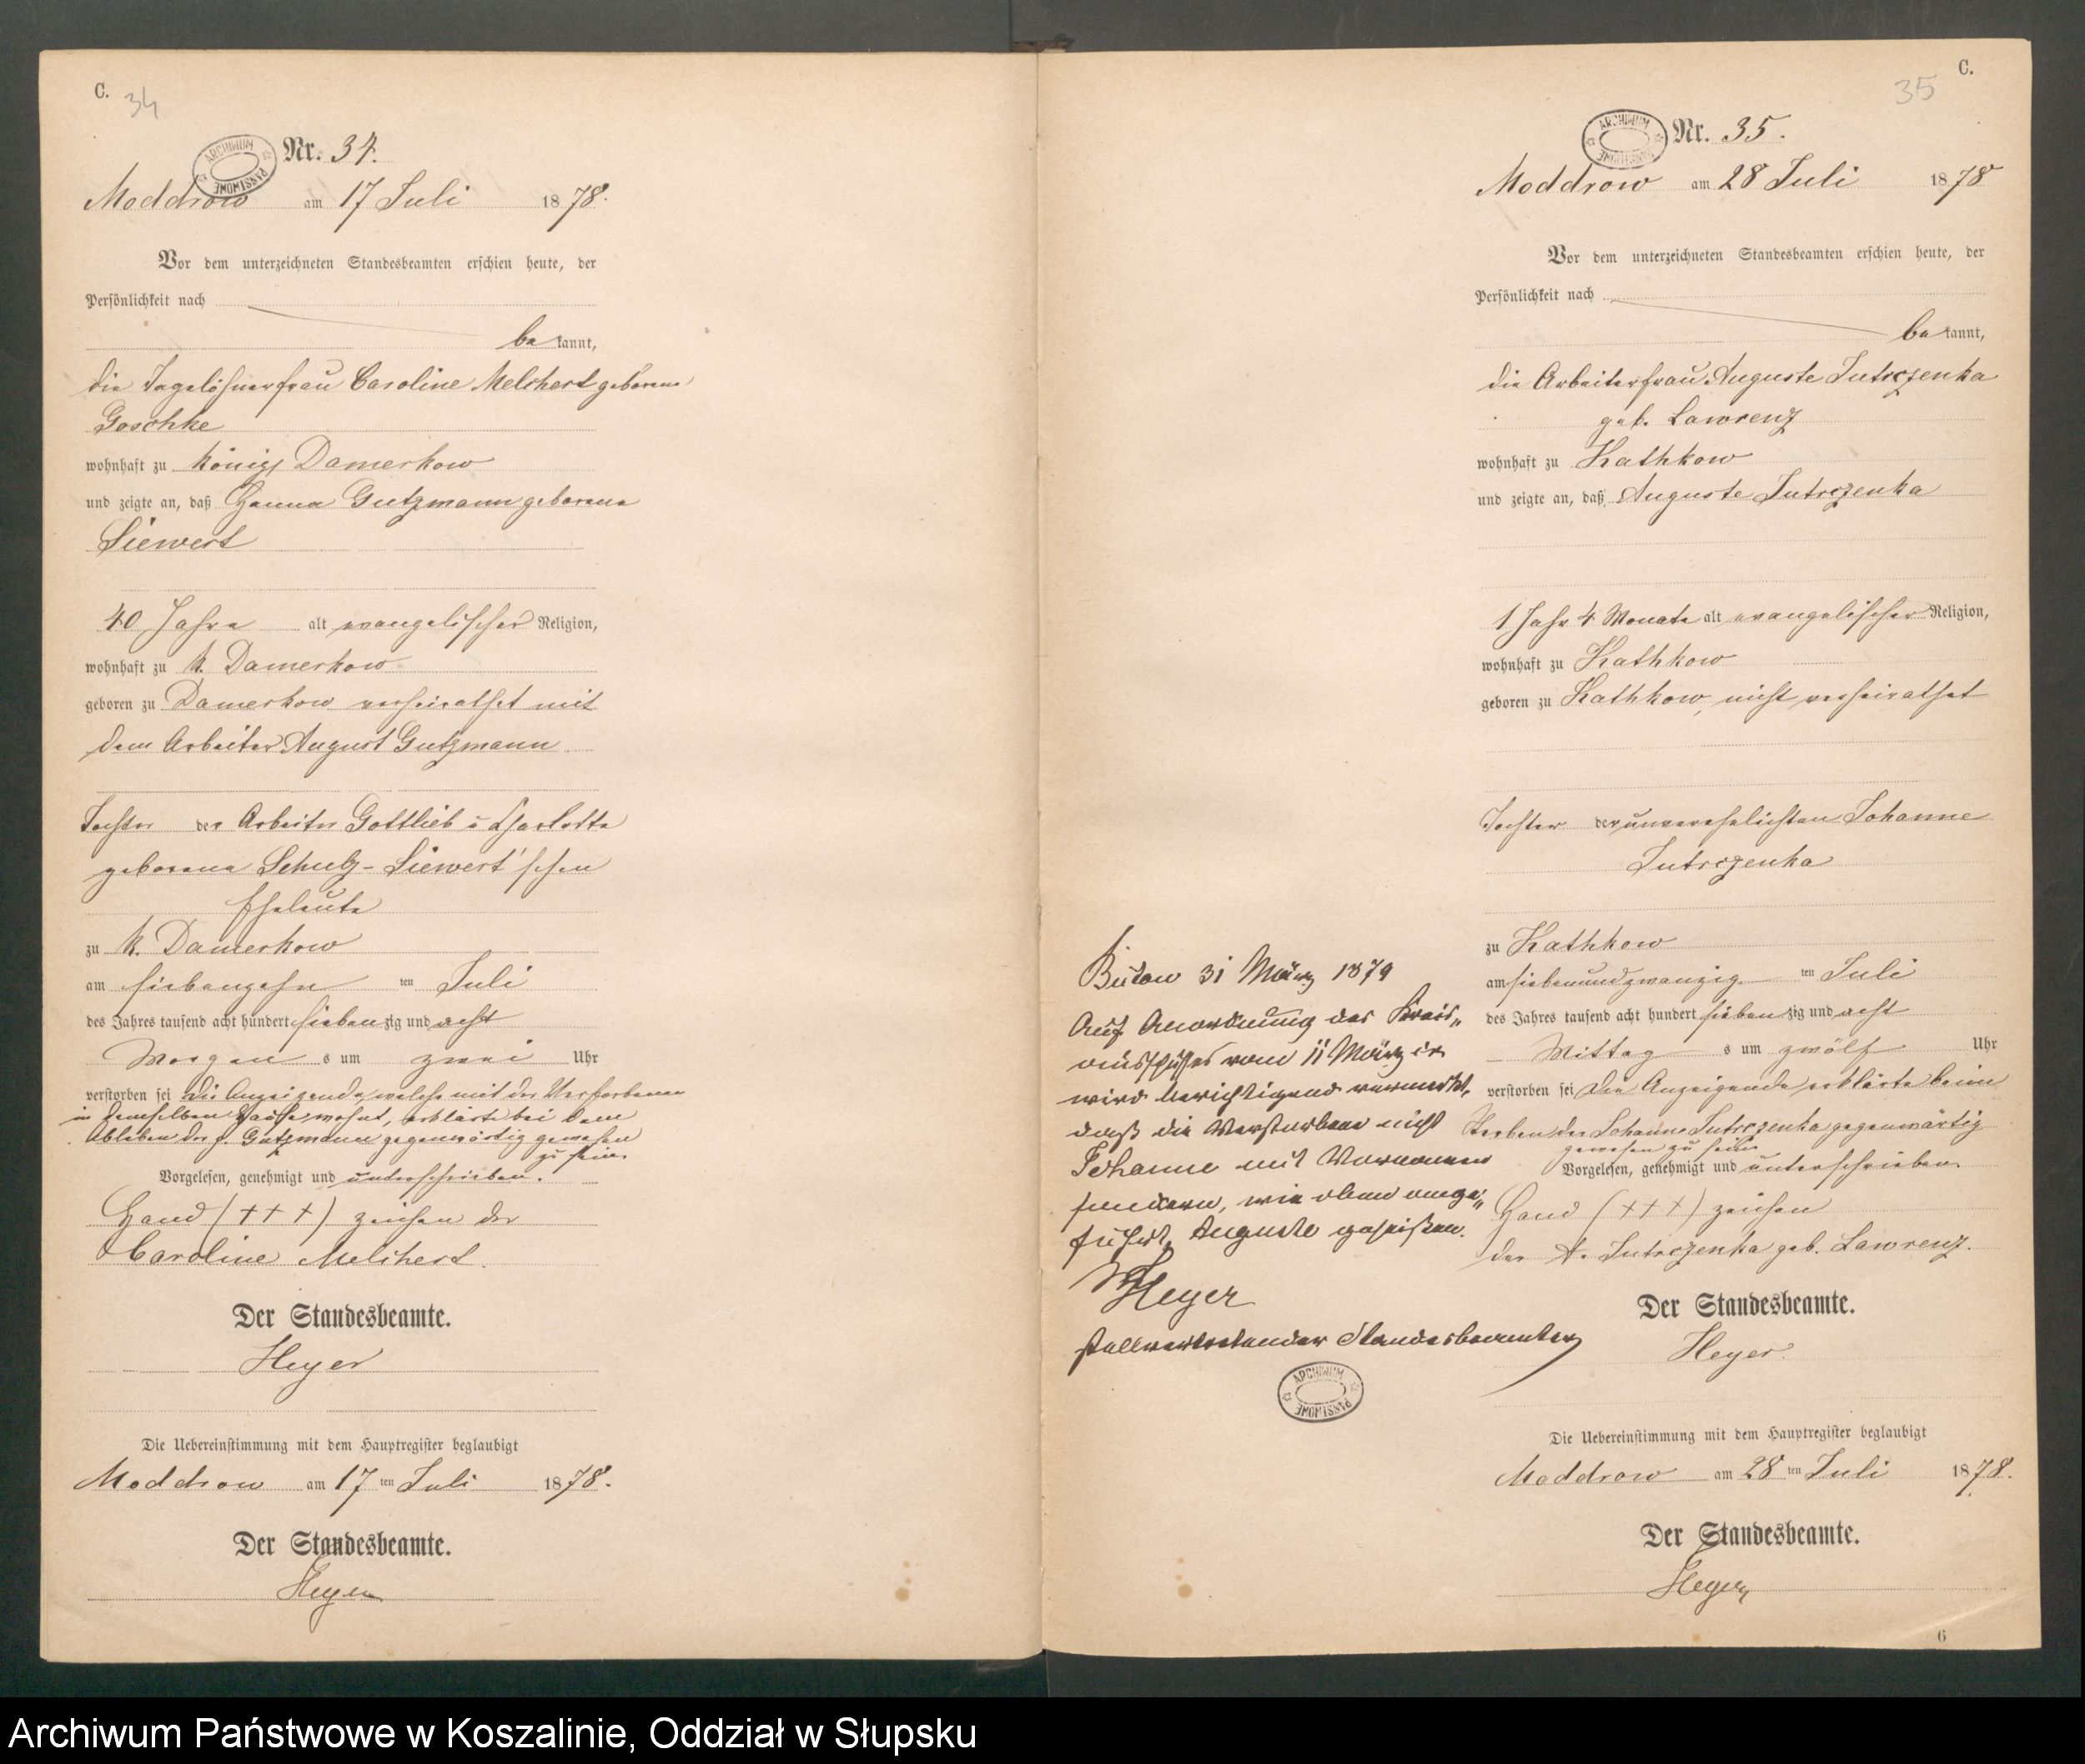 C.
34
ARCHIWUM PAŃSTWOWE
Nr. 34.
Moddrow am 17 Juli 1878.
Vor dem unterzeichneten Standesbeamten erschien heute, der
Persönlichkeit nach
bekannt,
die Tagelöhnerfrau Caroline Melchert geborene
Goschke
wohnhaft zu Königl Damerkow
und zeigte an, daß Hanna Gutzmann geborene
Siewert
40 Jahre alt evangelischer Religion,
wohnhaft zu K. Damerkow
geboren zu Damerkow verheirathet mit
dem Arbeiter August Gutzmann
Tochter der Arbeiter Gottlieb u Charlotte
geborene Schulz-Siewert'schen
Eheleute
zu K. Damerkow
am siebenzehn ten Juli
des Jahres tausend acht hundert siebenzig und acht
Morgens um zwei Uhr
verstorben sei die Anzeigende welche mit der Verstorbenen
in demselben Hause wohnt, erklärte bei dem
Ableben der p. Gutzmann gegenwärtig gewesen
zu sein.
Vorgelesen, genehmigt und unterschrieben.
Hand (+++) zeichen der
Caroline Melchert.
Der Standesbeamte.
Heyer
Die Uebereinstimmung mit dem Hauptregister beglaubigt
Moddrow am 17 ten Juli 1878.
Der Standesbeamte.
Heyer
C.
35
ARCHIWUM PAŃSTWOWE
Nr. 35.
Moddrow am 28 Juli 1878
Vor dem unterzeichneten Standesbeamten erschien heute, der
Persönlichkeit nach
bekannt,
die Arbeiterfrau Auguste Jutrczenka
geb. Lawrenz
wohnhaft zu Kathkow
und zeigte an, daß Auguste Jutrczenka
1 Jahr 4 Monate alt evangelischer Religion,
wohnhaft zu Kathkow
geboren zu Kathkow, nicht verheirathet
Tochter der unverehelichten Johanne
Jutrczenka
zu Kathkow
am siebenundzwanzig ten Juli
des Jahres tausend acht hundert siebenzig und acht
Mittags um zwölf Uhr
verstorben sei die Anzeigende erklärte beim
Sterben der Johanne Jutrczenka gegenwärtig
gewesen zu sein
Vorgelesen, genehmigt und unterschrieben.
Hand (+++) zeichen
der A. Jutrczenka geb. Lawrenz.
Der Standesbeamte.
Heyer.
Die Uebereinstimmung mit dem Hauptregister beglaubigt
Moddrow am 28 ten Juli 1878.
Der Standesbeamte.
Heyer
6
Bütow 31 März 1879
Auf Anordnung des Kreis„
ausschusses vom 11 März cr
wird berichtigend vermerkt,
daß die Verstorbene nicht
Johanne mit Vornamen
sondern, wie oben ange„
führt, Auguste geheißen.
Heyer
stellvertretender Standesbeamter
ARCHIWUM PAŃSTWOWE
Archiwum Państwowe w Koszalinie, Oddział w Słupsku